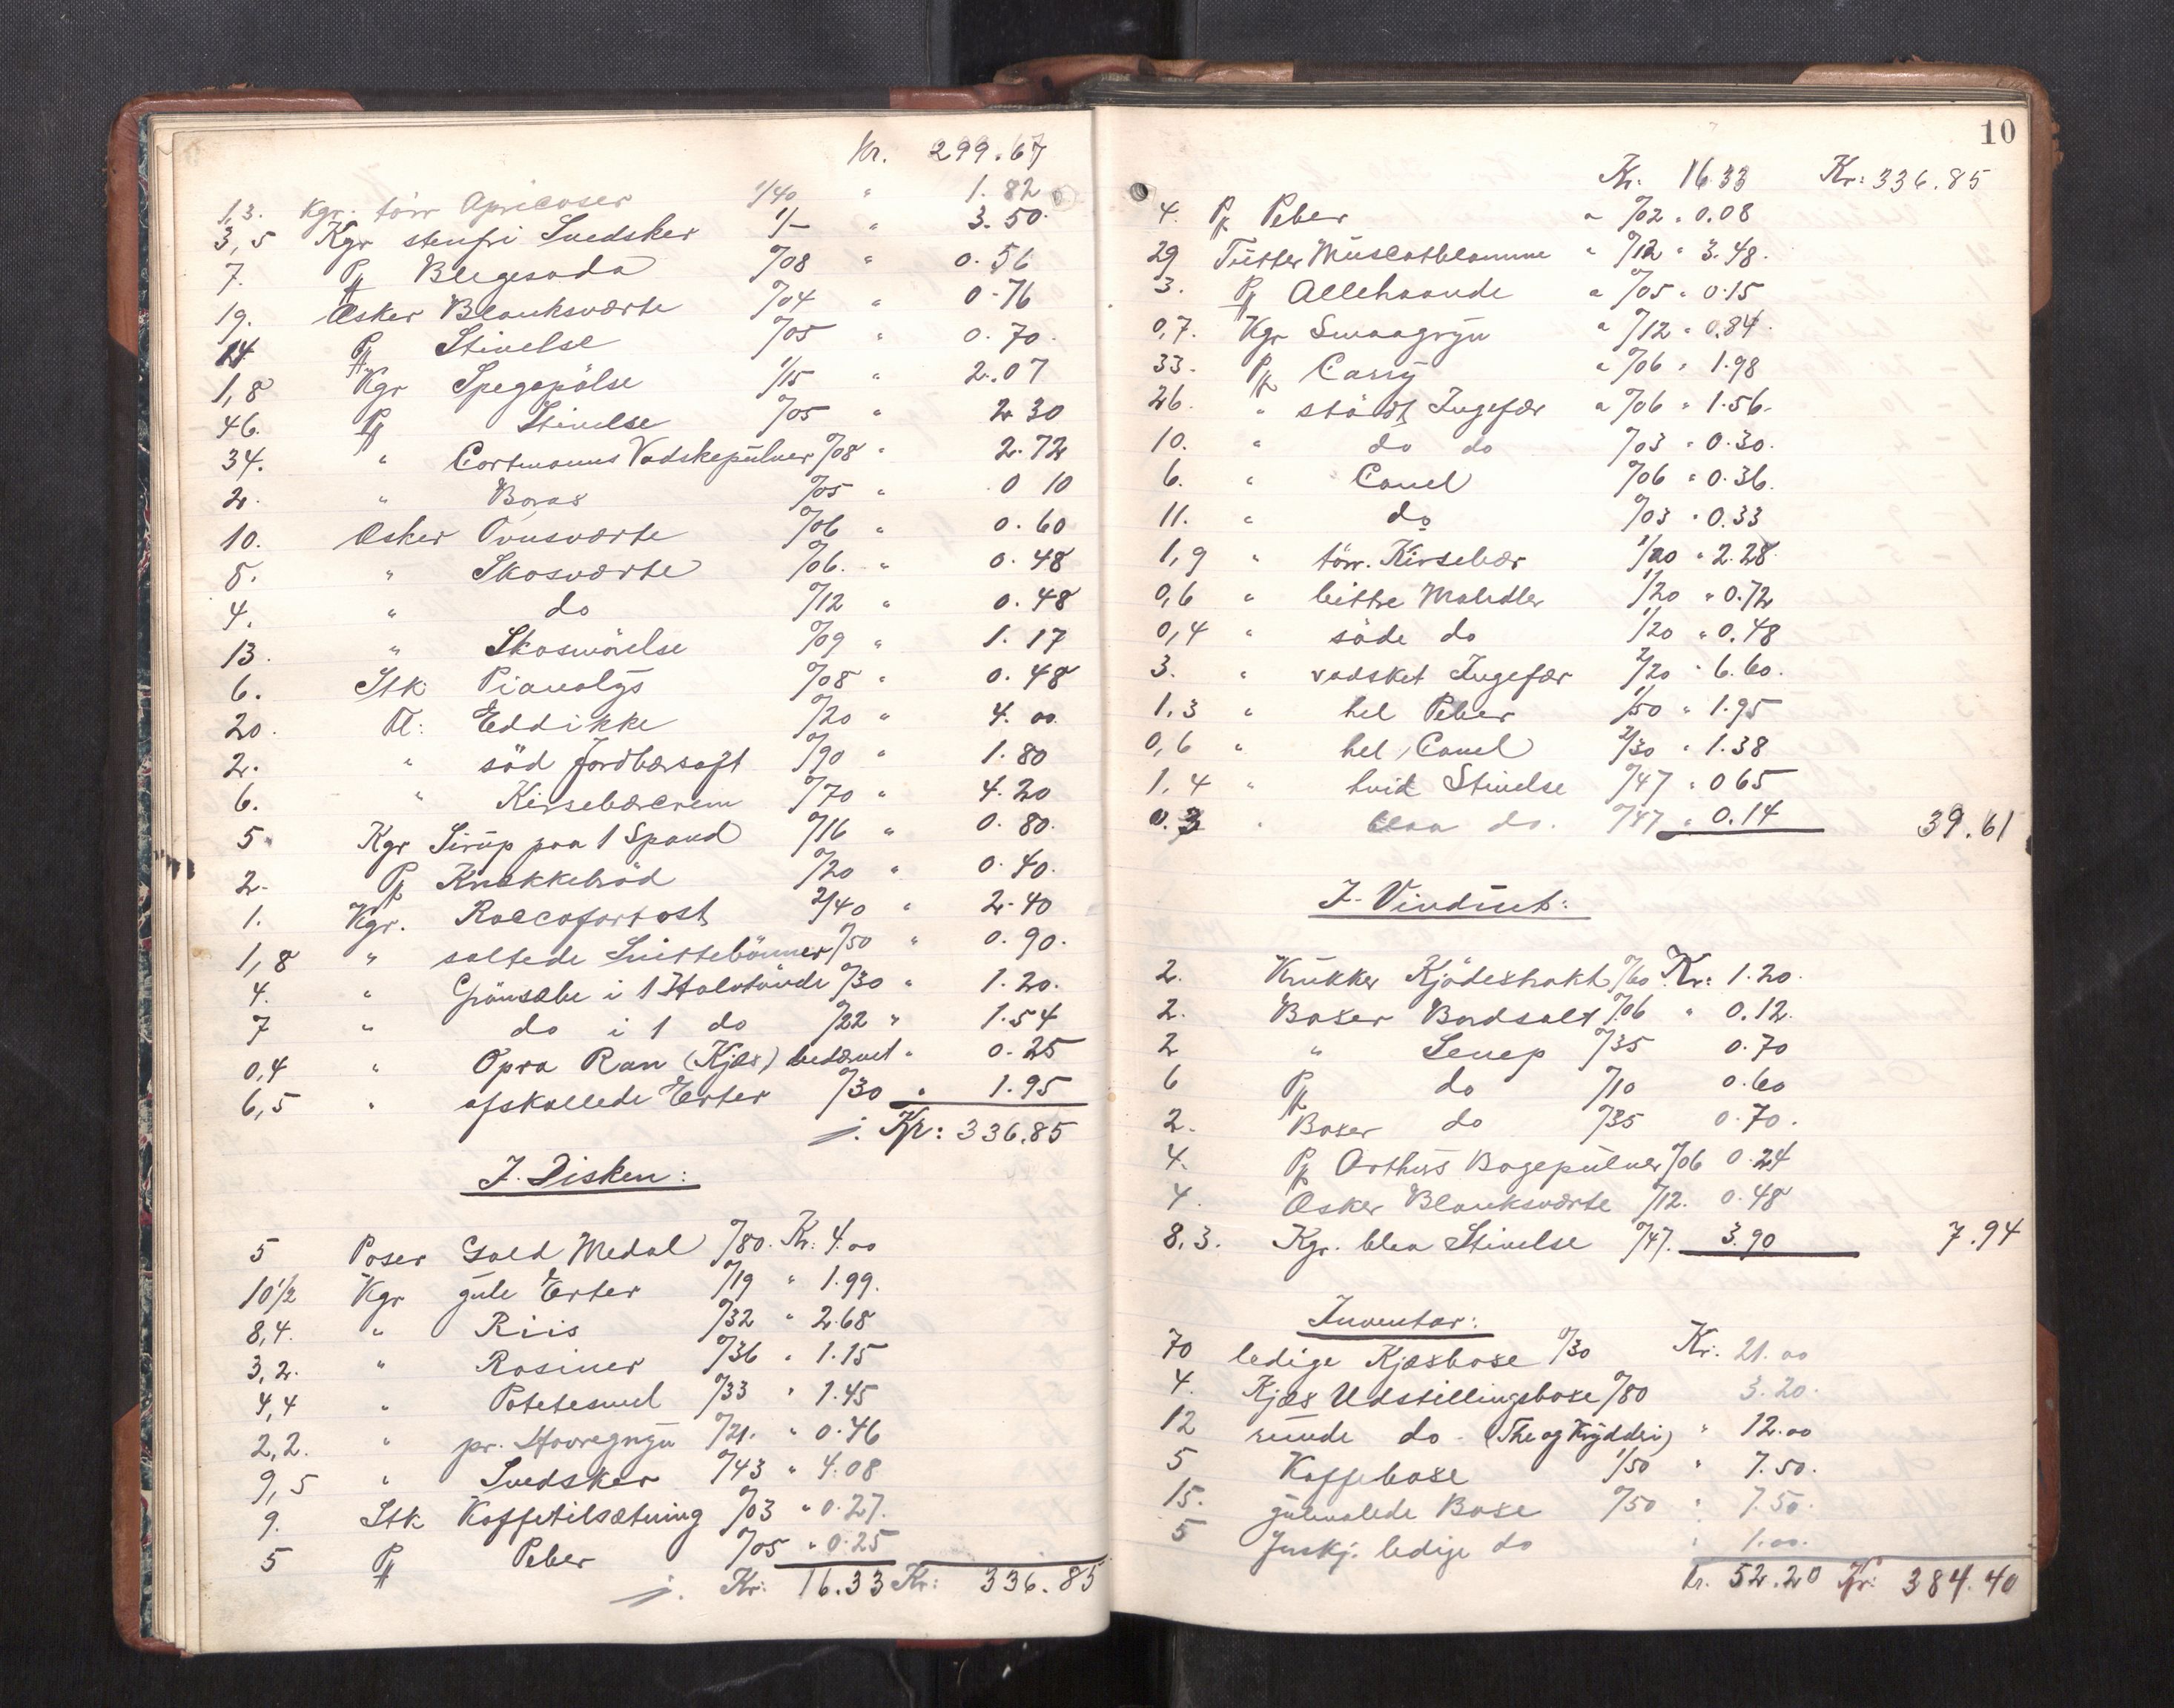 Kr. 299.67
1,3. Kgr. törr Apricoser 1/40 " 1.82
3,5 Kgr stenfri Svedsker 1/- " 3.50.
7. Pk Blegesoda º/08 " 0.56
19. Æsker Blanksværte º/04 " 0.76
14 Pk Stivelse º/05 " 0.70.
1,8 Kgr Spegepölse 1/15 " 2.07
46. Pk Stivelse º/05 " 2.30
34. " Cortmanns Vadskepulver º/08 " 2.72
2. " Borax º/05 " 0 10
10. Æsker Ovnsværte º/06 " 0.60
8. " Skosværte º/06. " 0.48
4. " do º/12 " 0.48
13. " Skosmörelse º/09 " 1.17
6. Stk Pianolys º/08 " 0.48
20. Fl: Eddikke º/20 " 4.00.
2. " söd Jordbærsaft º/90 " 1.80
6. " Kirsebærcrem º/70 " 4.20
5 Kgr Sirup paa 1 Spand º/16 " 0.80.
2. Pk Knækkebröd º/20 " 0.40.
1. Kgr. Roccofortost 2/40 " 2.40
1,8 " saltede Snittebönner º/50 " 0.90.
4. " Grönsæbe i 1 Halvtönde º/30 " 1.20.
7 " do i 1 do º/22 " 1.54
0,4 " Opra Ran (Kjæx) bedærvet " 0.25
6,5 " afskallede Erter º/30 " 1.95
Kr: 336.85
I Disken:
5 Poser Gold Medal º/80. Kr: 4.00
10½ Kgr gule Erter º/19 " 1.99.
8,4. " Riis º/32 " 2.68
3,2. " Rosiner º/36 " 1.15
4,4 " Potetesmel º/33 " 1.45
2,2. " pr. Havregryn º/21. " 0.46
9,5 " Svedsker º/43 " 4.08
9. Stk Kaffetilsætning º/03 " 0.27.
5 Pk Peber º/05 " 0.25
Kr: 16.33 Kr: 336.85
10
Kr. 16.33 Kr: 336.85
4. Pk Peber " º/02 " 0.08
29 Tütter Muscatblomme " º/12 " 3.48.
3. Pk Allehaande " º/05 " 0.15
0,7. Kgr Smaagryn " º/12 " 0.84.
33. Pk Carry " º/06 " 1.98
26. " stödt Ingefær " º/06 " 1.56.
10. " do do º/03 " 0.30.
6. " Canel º/06 " 0.36.
11. " do º/03 " 0.33
1,9 " törr. Kirsebær 1/20 " 2.28
0,6 " bittre Mandler 1/20 " 0.72
0,4 " söde do 1/20 " 0.48
3. " vadsket Ingefær 2/20 " 6.60.
1.3 " hel Peber 1/50 " 1.95
0,6 " hel Canel 2/30 " 1.38
1,4 " hvid Stivelse º/47 " 0 65
0.3 " blaa do. º/47 " 0.14 39.61
I Vinduet:
2. Krukker Kjödextrakt º/60 Kr: 1.20.
2. Boxer Bordsalt º/06 " 0.12.
2 " Senep º/35 0.70
6 Pk do º/10 0.60
2. Boxer do º/35 0.70.
4. Pk Arthurs Bagepulver º/06 0.24
4. Æsker Blanksværte º/12. 0.48
8,3. Kgr. blaa Stivelse º/47. 3.90 7.94
Inventar:
70 ledige Kjæxboxe º/30 Kr. 21.00
4. Kjæx Udstillingsboxe º/80 3.20.
12 runde do - (The og Krydderi) " 12.00
5 Kaffeboxe 1/50 " 7.50.
15. gulmalede Boxe º/50 " 7.50.
5 ledige do " 1.00.
Kr. 52.20 Kr: 384.40